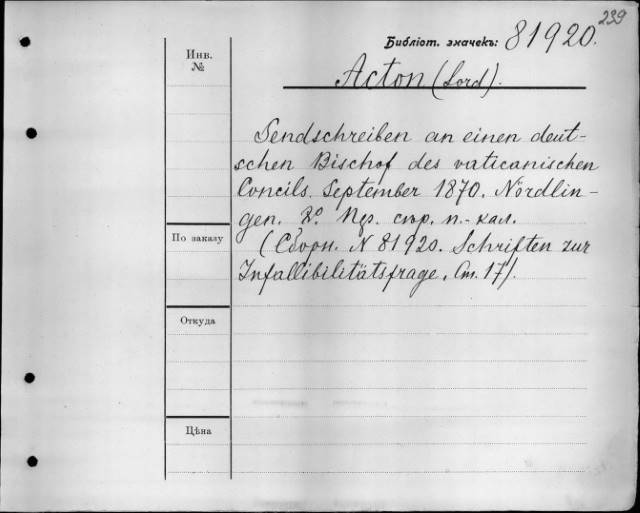 239
Библіот. значекъ: 81920.
Инв.
№
Acton (Lord).
Sendschreiben an einen deut-
schen Bischof des vaticanischen
Concils. September 1870. Nördlin-
gen. 8º. 19s. стр. п.-кал.
(Сборн. N 81920. Schriften zur
Infallibilitätsfrage. Ст. 17).
По заказу
Откуда
Цѣна